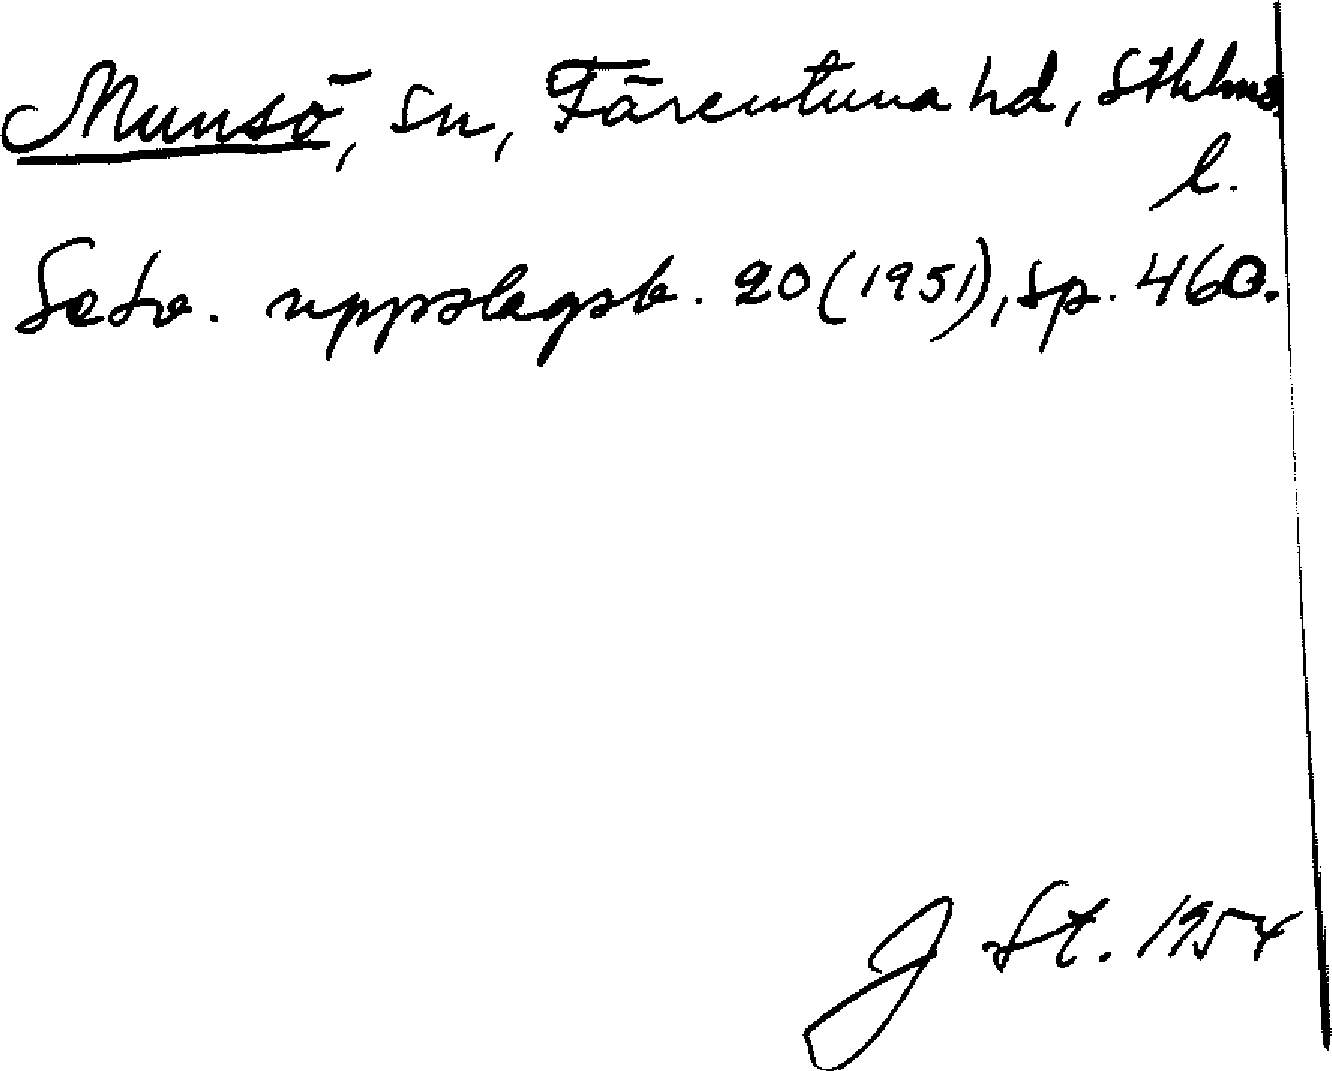 Munsö, sn, Färentuna hd, Sthlms
l.
Sv. uppslagsb. 20 (1951), sp. 460.
J St. 1954